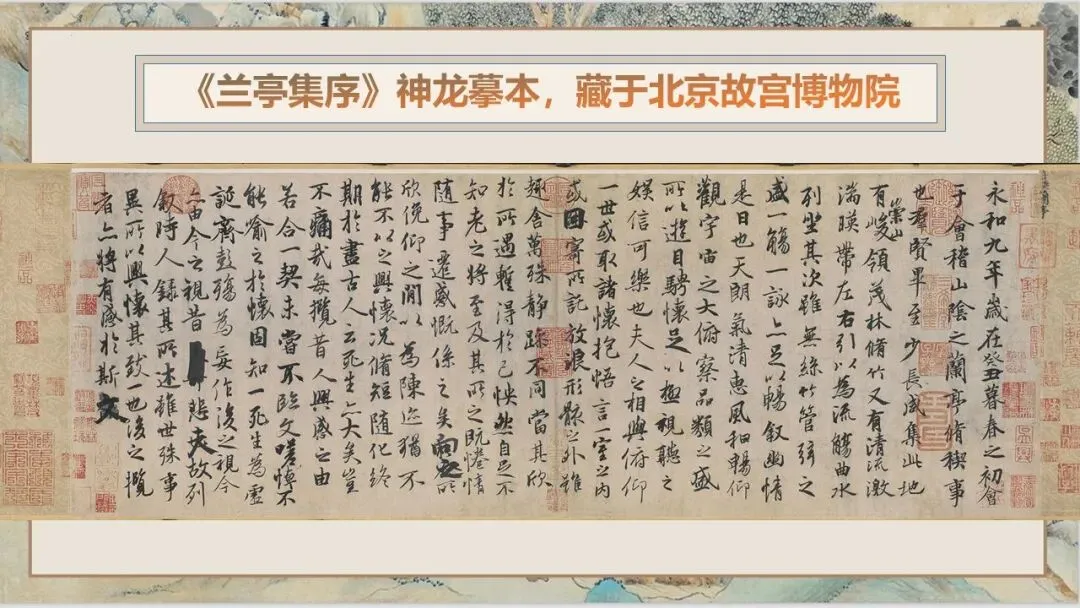 《兰亭集序》神龙摹本，藏于北京故宫博物院
永和九年歲在癸丑暮春之初會
于會稽山陰之蘭亭脩稧事
也羣賢畢至少長咸集此地
有崇山峻領茂林脩竹又有清流激
湍暎帶左右引以為流觴曲水
列坐其次雖無絲竹管弦之
盛一觴一詠亦足以暢敘幽情
是日也天朗氣清惠風和暢仰
觀宇宙之大俯察品類之盛
所以遊目騁懷足以極視聽之
娛信可樂也夫人之相與俯仰
一世或取諸懷抱悟言一室之內
或因寄所託放浪形骸之外雖
趣舍萬殊静躁不同當其欣
於所遇暫得於己怏然自足不
知老之將至及其所之既惓情
隨事遷感慨係之矣向之所
欣俛仰之閒以為陳迹猶不
能不以之興懷况脩短隨化終
期於盡古人云死生亦大矣豈
不痛哉每攬昔人興感之由
若合一契未嘗不臨文嗟悼不
能喻之於懷固知一死生為虛
誕齊彭殤為妄作後之視今
亦由今之視昔悲夫故列
敘時人錄其所述雖世殊事
異所以興懷其致一也後之攬
者亦將有感於斯文